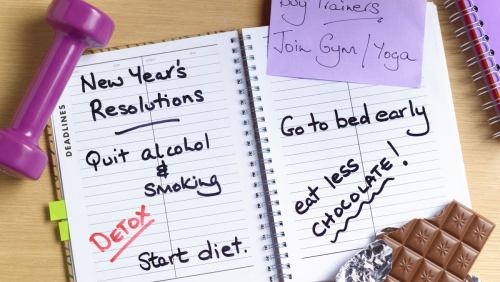 DEADLINES
New Year's
Resolutions
Quit alcohol
&
smoking
DETOX
Start diet.
Buy Trainers
Join Gym / Yoga
Go to bed early
eat less
CHOCOLATE!